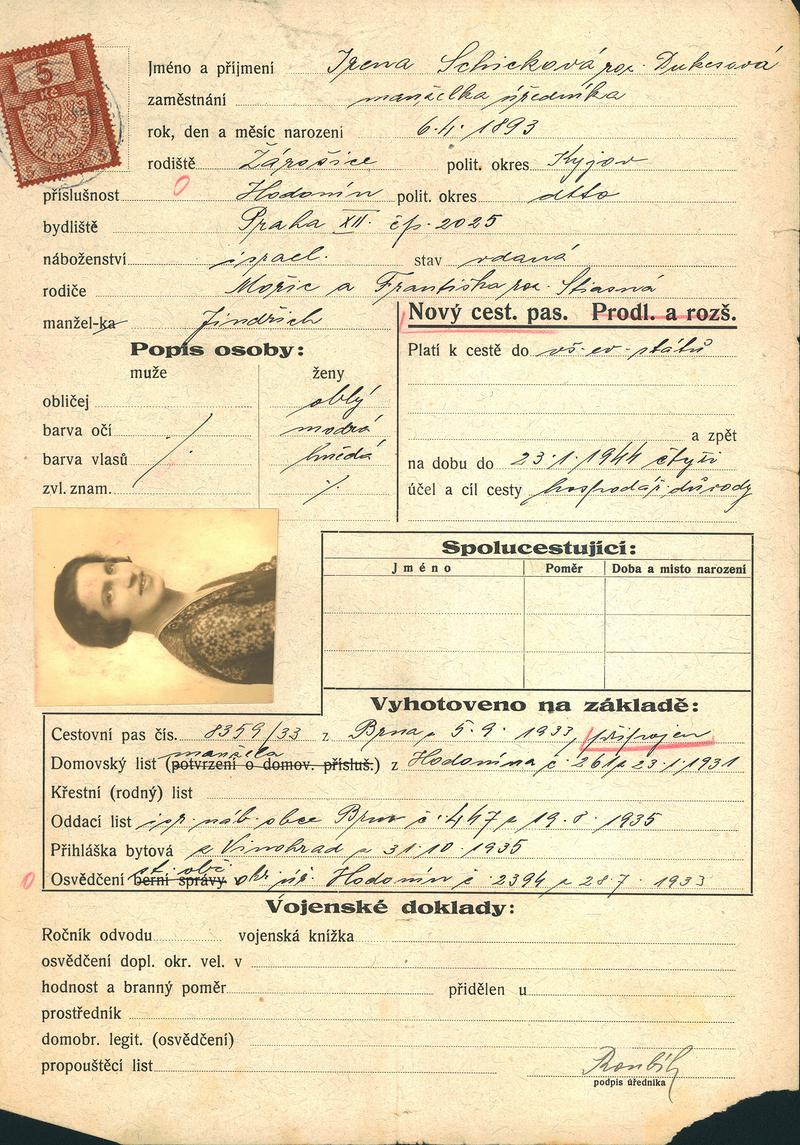 KOLEK
5
Kč
Jméno a příjmení Irena Schicková roz. Dukesová
zaměstnání manželka úředníka
rok, den a měsíc narození 6.4. 1893
rodiště Žárošice polit. okres Kyjov
příslušnost Hodonín polit. okres dtto
bydliště Praha XII. čp. 2025
náboženství israel. stav vdaná
rodiče Mořic a Františka roz. Stiasná
manžel-ka Jindřich
Nový cest. pas. Prodl. a rozš.
Popis osoby:
muže ženy
obličej oblý
barva očí modrá
barva vlasů hnědá
zvl. znam. ./.
Platí k cestě do vš. ev. států
a zpět
na dobu do 23.1.1944 čtyři
účel a cíl cesty hospodář. důvody
Spolucestující:
Jméno Poměr Doba a místo narození
Vyhotoveno na základě:
Cestovní pas čís. 8359/33 z Brna z 5.9. 1933, připojen
manžela
Domovský list (potvrzení o domov. přísluš.) z Hodonína č. 261 z 23.1.1931
Křestní (rodný) list
Oddací list isr. náb. obce Brno č. 447 z 19.8. 1935
Přihláška bytová z Vinohrad z 31.10.1935
st. obč.
Osvědčení berní správy okr. úř. Hodonín č. 2394 z 28.7. 1933
Vojenské doklady:
Ročník odvodu vojenská knížka
osvědčení dopl. okr. vel. v
hodnost a branný poměr přidělen u
prostředník
domobr. legit. (osvědčení)
propouštěcí list
podpis úředníka